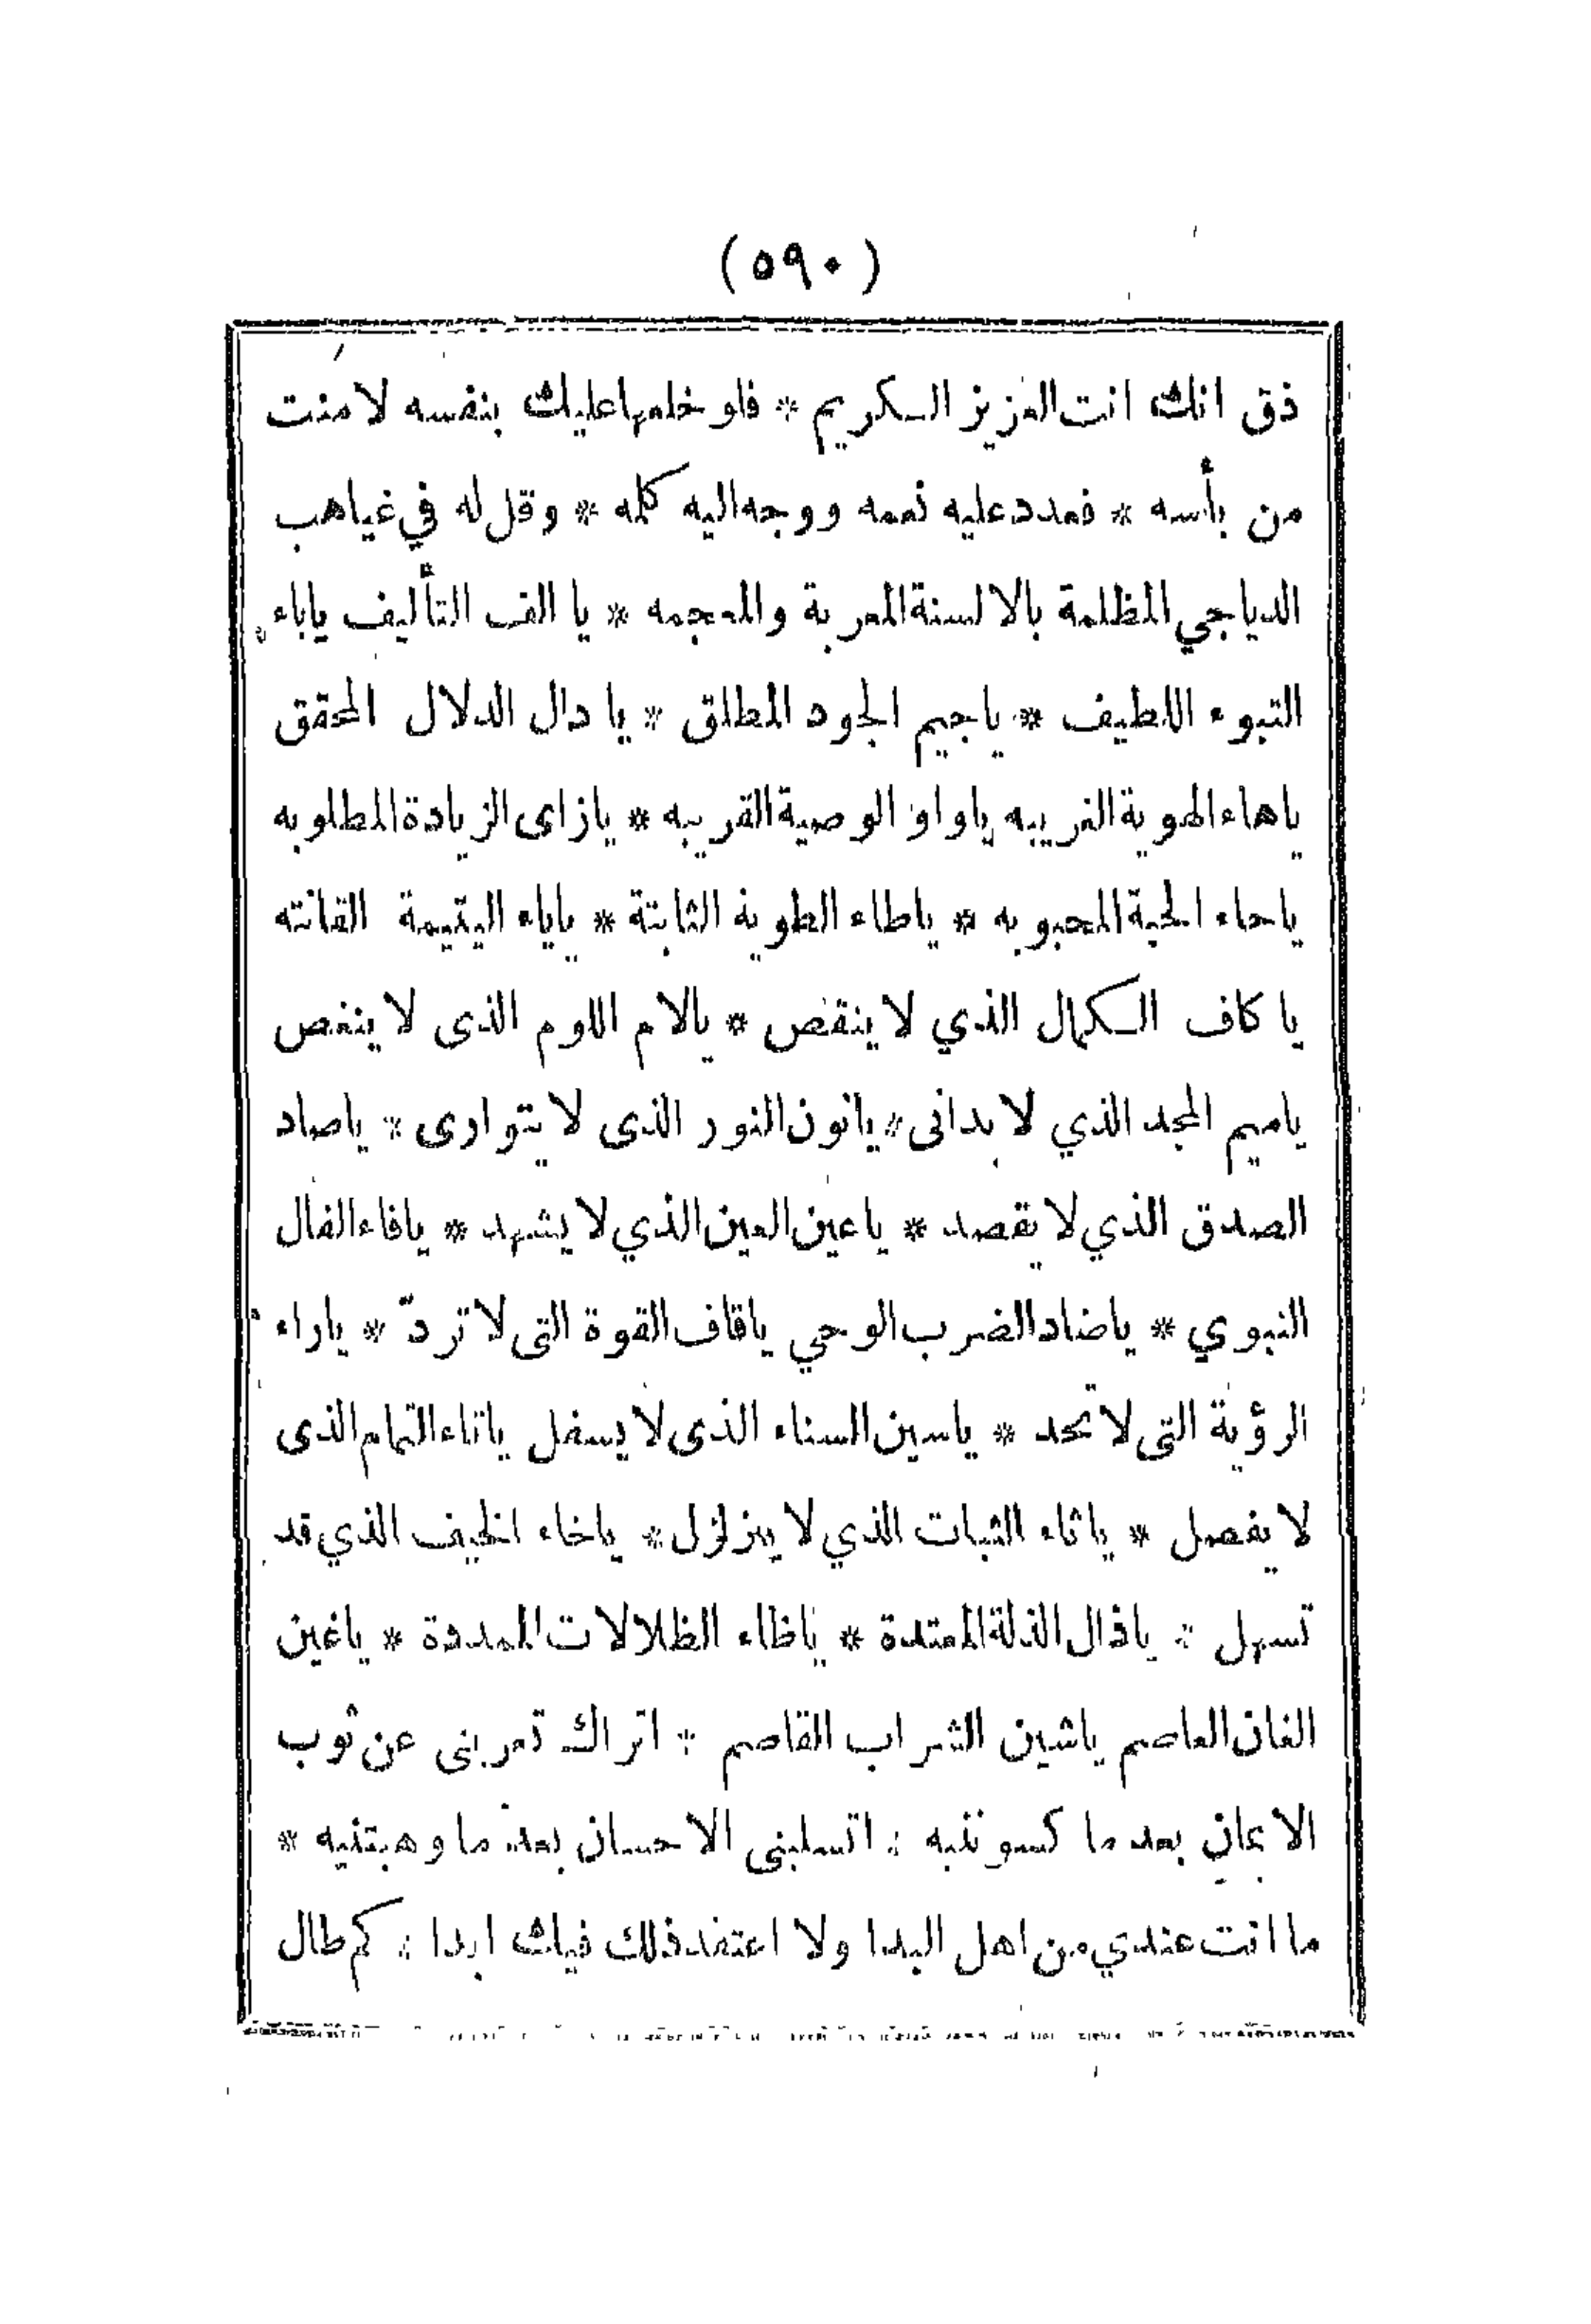 (٥٩٠)
ذق انك انت العزيز الكريم * فلو خلعها عليك بنفسه لامنت
من بأسه * فعدد عليه نعمه ووجه اليه كلمه * وقل له في غياهب
الدياجي المظلمة بالالسنة المعربة والمعجمه * يا الف التأليف ياباء
التبوء اللطيف * ياجيم الجود المطلق * يا دال الدلال المحقق
ياهاء الهوية الغريبه ياواو الوصية القريبه * يازاى الزيادة المطلوبه
ياحاء الحبة المحبوبه * ياطاء الطوية الثابتة * ياياء اليتيمة القانته
يا كاف الكمال الذي لا ينقص * يالام اللوم الذى لا ينغص
ياميم المجد الذي لا يدانى * يانون النور الذى لا يتوارى * ياصاد
الصدق الذي لا يقصد * ياعين العين الذي لا يشهد * يافاء الفال
النبوي * ياضاد الضرب الوحي ياقاف القوة التى لا تردّ * ياراء
الرؤية التى لا تحد * ياسين السناء الذى لا يسفل ياتاء التمام الذى
لا يفصل * ياثاء الثبات الذي لا يتزلزل * ياخاء الخيف الذي قد
تسهل * ياذال الذلة الممتدة * ياظاء الظلالات الممدودة * ياغين
الغان العاصم ياشين الشراب القاصم * اتراك تعربنى عن ثوب
الايمان بعد ما كسوتنيه * اتسلبنى الاحسان بعد ما وهبتنيه *
ما انت عندي من اهل البدا ولا اعتقد ذلك فيك ابدا * كم طال